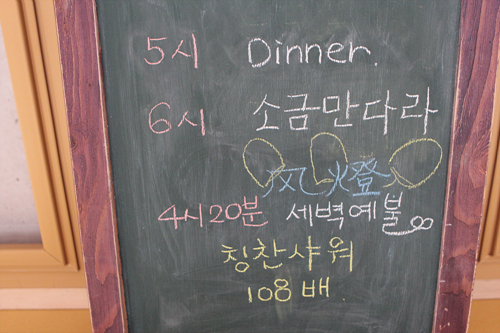 5시 Dinner.
6시 소금만다라
风燈
4시20분 세벽예불
칭찬샤워
108배